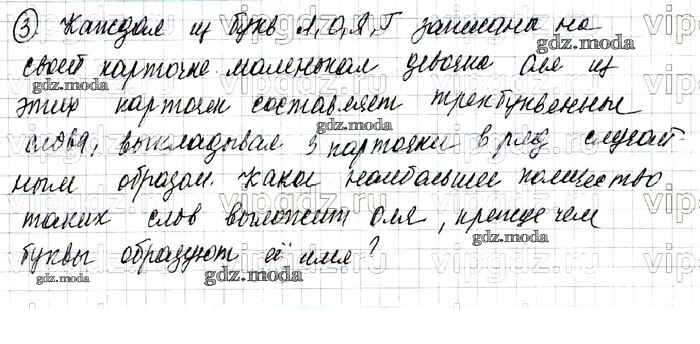 ③ Каждая из букв Л, О, Я, Г записаны на
своей карточке. маленькая девочка Оля из
этих карточек составляет трехбуквенные
слова, выкладывая 3 карточки в ряд случай-
ным образом. Какое наибольшее количество
таких слов выложит Оля, прежде чем
буквы образуют её имя?
gdz.moda
gdz.moda
gdz.moda
gdz.moda
gdz.moda
gdz.moda
vipgdz.vip